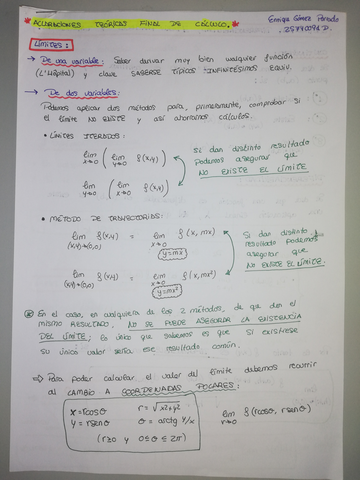 * ACLARACIONES TEÓRICAS FINAL DE CÁLCULO. *
Enrique Gómez
Límites:
→ De una variable: Saber derivar muy bien cualquier función
(L'Hôpital) y clave SABERSE TÍPICOS INFINITÉSIMOS EQUIV.
→ De dos variables:
Podemos aplicar dos métodos para, primeramente, comprobar si
el límite NO EXISTE y así ahorrarnos cálculos.
• LÍMITES ITERADOS:
lim x→0 ( lim y→0 f(x,y)
lim y→0 ( lim x→0 f(x,y)
Si dan distinto resultado
Podemos asegurar que
NO EXISTE EL LÍMITE
• MÉTODO DE TRAYECTORIAS:
lim (x,y)→(0,0) f(x,y) = lim x→0 f(x, mx)
y=mx
lim (x,y)→(0,0) f(x,y) = lim x→0 f(x, mx²)
y=mx²
Si dan distinto
resultado podemos
asegurar que
NO EXISTE EL LÍMITE.
En el caso, en cualquiera de los 2 métodos, de que den el
mismo RESULTADO, NO SE PUEDE ASEGURAR LA EXISTENCIA
DEL LÍMITE; Lo único que sabemos es que si existiese
su único valor sería ese resultado común.
⇒ Para poder calcular el valor del límite debemos recurrir
al CAMBIO A COORDENADAS POLARES:
x = rcosθ r = √x²+y²
y = rsenθ θ = arctg y/x
(r≥0 y 0≤θ≤2π)
lim r→0 f(rcosθ, rsenθ)